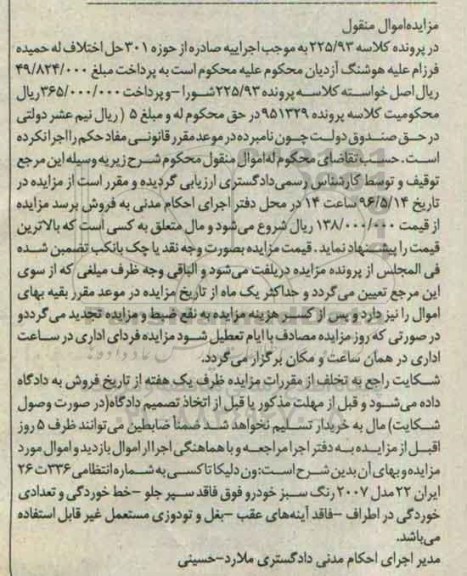 مزایده اموال منقول
در پرونده کلاسه ۲۲۵/۹۳ به موجب اجراییه صادره از حوزه ۳۰۱ حل اختلاف له حمیده
فرزام علیه هوشنگ آزدیان محکوم علیه محکوم است به پرداخت مبلغ ۴۹/۸۲۴/۰۰۰
ریال اصل خواسته کلاسه پرونده ۲۲۵/۹۳ شورا - و پرداخت ۳۶۵/۰۰۰/۰۰۰ ریال
محکومیت کلاسه پرونده ۹۵۱۳۲۹ در حق محکوم له و مبلغ ۵ (ریال نیم عشر دولتی
در حق صندوق دولت چون نامبرده در موعد مقرر قانونی مفاد حکم را اجرا نکرده
است. حسب تقاضای محکوم له اموال منقول محکوم شرح زیر به وسیله این مرجع
توقیف و توسط کارشناس رسمی دادگستری ارزیابی گردیده و مقرر است از مزایده در
تاریخ ۹۶/۵/۱۴ ساعت ۱۴ در محل دفتر اجرای احکام مدنی به فروش برسد مزایده
از قیمت ۱۳۸/۰۰۰/۰۰۰ ریال شروع می‌شود و مال متعلق به کسی است که بالاترین
قیمت را پیشنهاد نماید. قیمت مزایده بصورت وجه نقد یا چک بانکی تضمین شده
فی المجلس از پرونده مزایده دریافت می‌شود و الباقی وجه ظرف مبلغی که از سوی
این مرجع تعیین می‌گردد و حداکثر یک ماه از تاریخ مزایده در موعد مقرر بقیه بهای
اموال را نیز دارد و پس از کسر هزینه مزایده به نفع ضبط و مزایده تجدید می‌گردد و
در صورتی که روز مزایده مصادف با ایام تعطیل شود مزایده فردای اداری در ساعت
اداری در همان ساعت و مکان برگزار می‌گردد.
شکایت راجع به تخلف از مقررات مزایده ظرف یک هفته از تاریخ فروش به دادگاه
داده می‌شود و قبل از مهلت مذکور یا قبل از اتخاذ تصمیم دادگاه (در صورت وصول
شکایت) مال به خریدار تسلیم نخواهد شد ضمنا ضابطین می‌توانند ظرف ۵ روز
قبل از مزایده به دفتر اجرا مراجعه و با هماهنگی اجرا از اموال بازدید و اموال مورد
مزایده و بهای آن بدین شرح است: ون دلیکا تاکسی به شماره انتظامی ۳۳۶ت ۲۶
ایران ۲۲ مدل ۲۰۰۷ رنگ سبز خودرو فوق فاقد سپر جلو - خط خوردگی و تعدادی
خوردگی در اطراف - فاقد آینه‌های عقب - بغل و تودوزی مستعمل غیر قابل استفاده
می‌باشد.
مدیر اجرای احکام مدنی دادگستری ملارد - حسینی